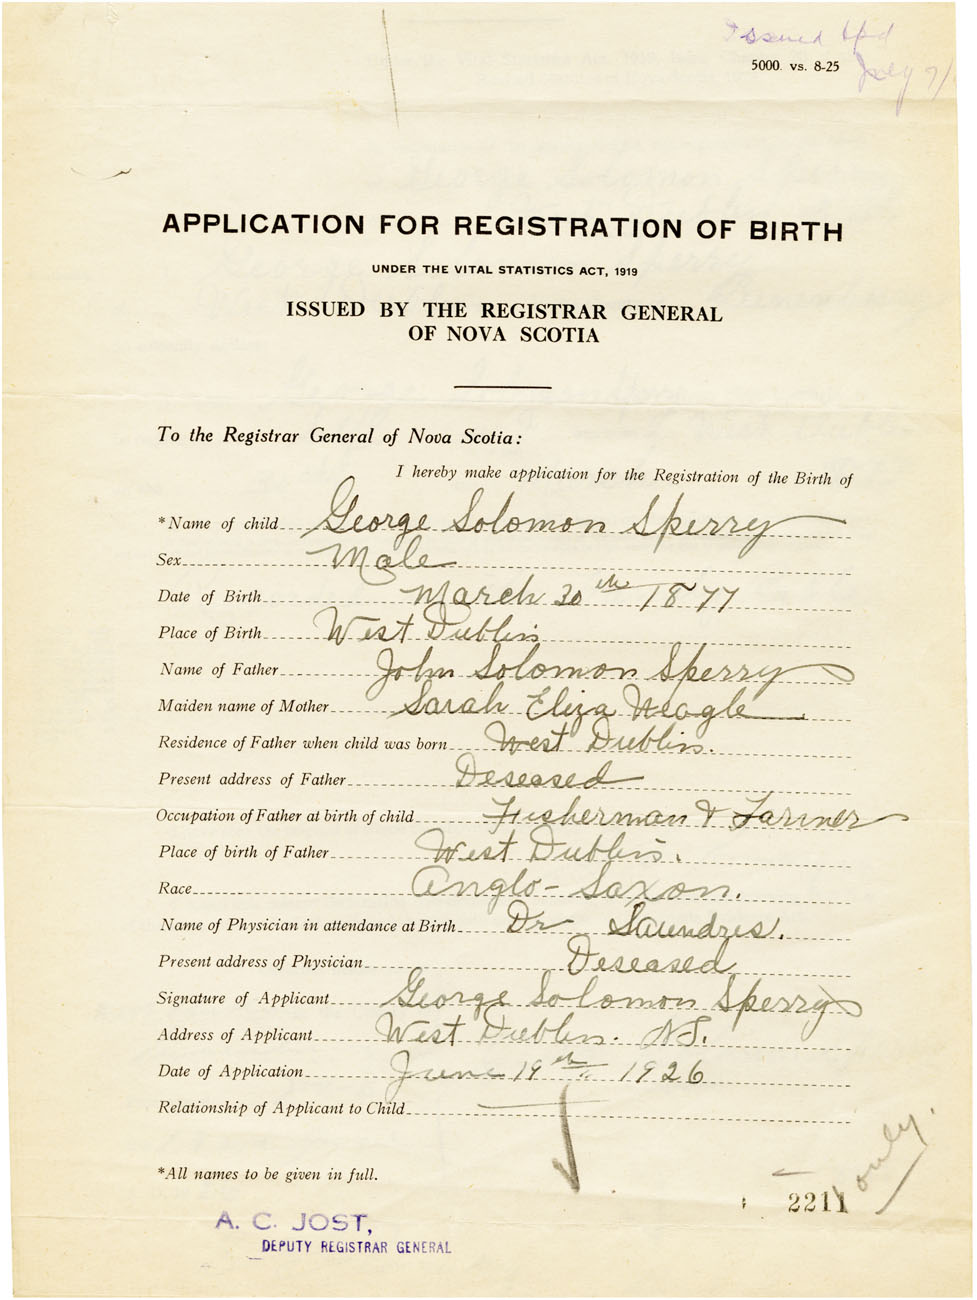 Issued
5000. vs. 8-25
July
APPLICATION FOR REGISTRATION OF BIRTH
UNDER THE VITAL STATISTICS ACT, 1919
ISSUED BY THE REGISTRAR GENERAL
OF NOVA SCOTIA
To the Registrar General of Nova Scotia:
I hereby make application for the Registration of the Birth of
*Name of child George Solomon Sperry
Sex Male
Date of Birth March 20th 1877
Place of Birth West Dublin
Name of Father John Solomon Sperry
Maiden name of Mother Sarah Eliza Neagle
Residence of Father when child was born West Dublin.
Present address of Father Deseased
Occupation of Father at birth of child Fisherman & Farmer
Place of birth of Father West Dublin.
Race Anglo-Saxon.
Name of Physician in attendance at Birth Dr Saundres.
Present address of Physician Deseased
Signature of Applicant George Solomon Sperry
Address of Applicant West Dublin. N.S.
Date of Application June 19th 1926
Relationship of Applicant to Child
*All names to be given in full.
only.
2211
A. C. JOST,
DEPUTY REGISTRAR GENERAL